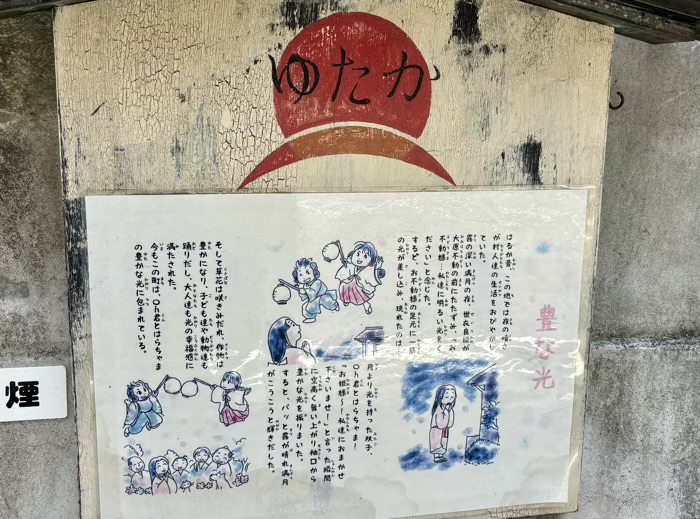 ゆたか
豊な光
はるか昔、この地では夜の暗さ
が村人達の生活をおびやかし
ていた。
霧の深い満月の夜、世衣良姫が
大原不動の前にたたずみ、「お
不動様…私達に明るい光をく
ださい」と念じた。
するど、お不動様の足元に一筋
の光が差し込み、現れたのは
月より光を持った双子、
Oh君とはらちゃま！
「お姫様〜！私達におまかせ
下さいませ！」と言った瞬間
に空高く舞い上がり袖口から
豊かな光を振りまいた。
すると、パッと霧が晴れ満月
がこうこうと輝きだした。
そして草花は咲きみだれ、作物は
豊かになり、子ども達や動物達も
踊りだし、大人達も光の幸福感に
満たされた。
今もこの町は、Oh君とはらちゃま
の豊かな光に包まれている。
煙